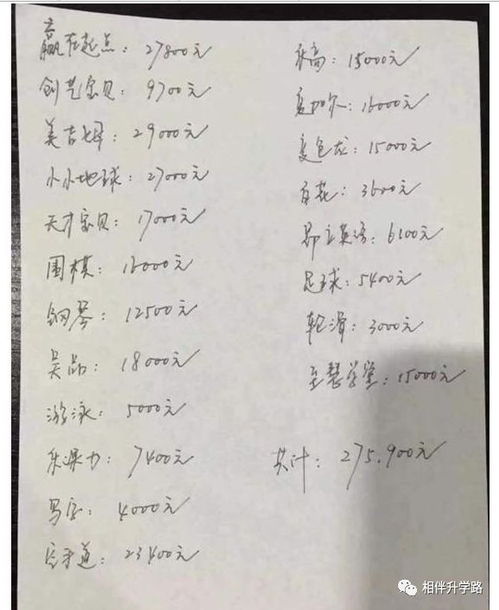 赢在起点：27800元
创艺宝贝：9700元
美吉姆：29000元
小小地球：27000元
天才宝贝：17000元
围棋：16000元
钢琴：12500元
昊晶：18000元
游泳：5000元
7400元
写字：4000元
空手道：23400元
乐高：15000元
夏加尔：16000元
变色龙：15000元
百花：3600元
昂立英语：6100元
足球：5400元
轮滑：3000元
至慧学堂：15000元
共计：275.900元
相伴升学路